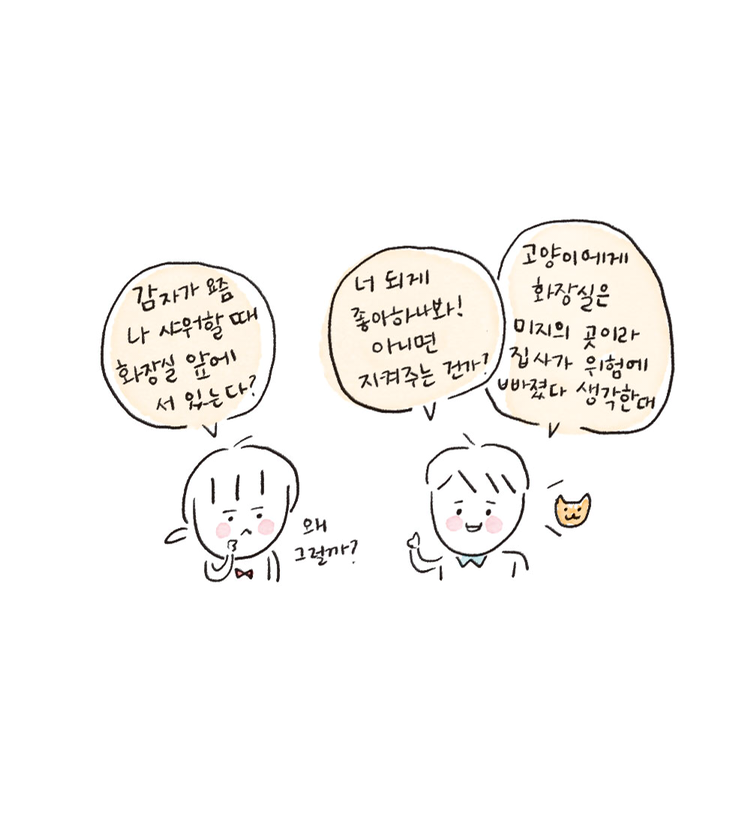 감자가 요즘
나 샤워할 때
화장실 앞에
서 있는다?
왜
그럴까?
너 되게
좋아하나봐!
아니면
지켜주는 건가?
고양이에게
화장실은
미지의 곳이라
집사가 위험에
빠졌다 생각한대